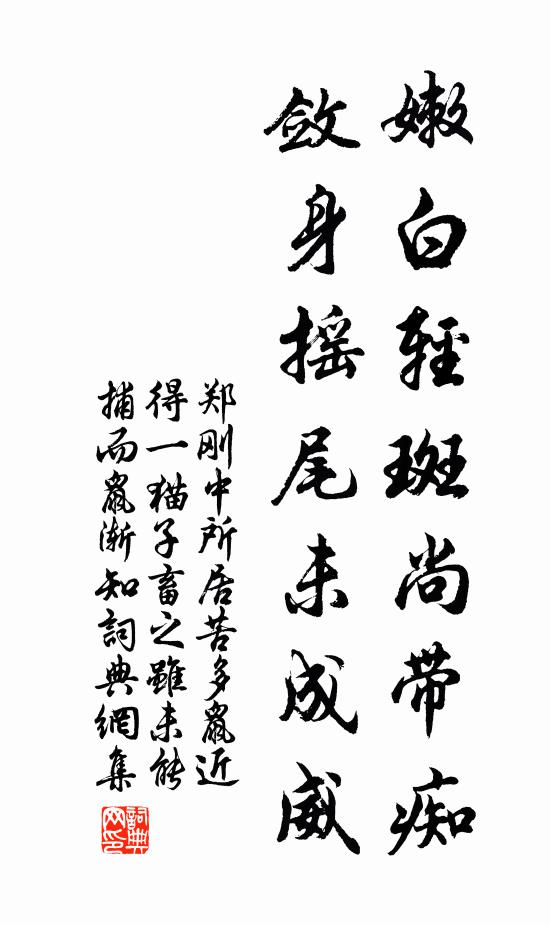 嫩白輕斑尚带痴
斂身摇尾未成威
郑刚中所居苦多鼠近
得一猫子畜之雖未能
捕而鼠渐知詞典網集
詞典
网印